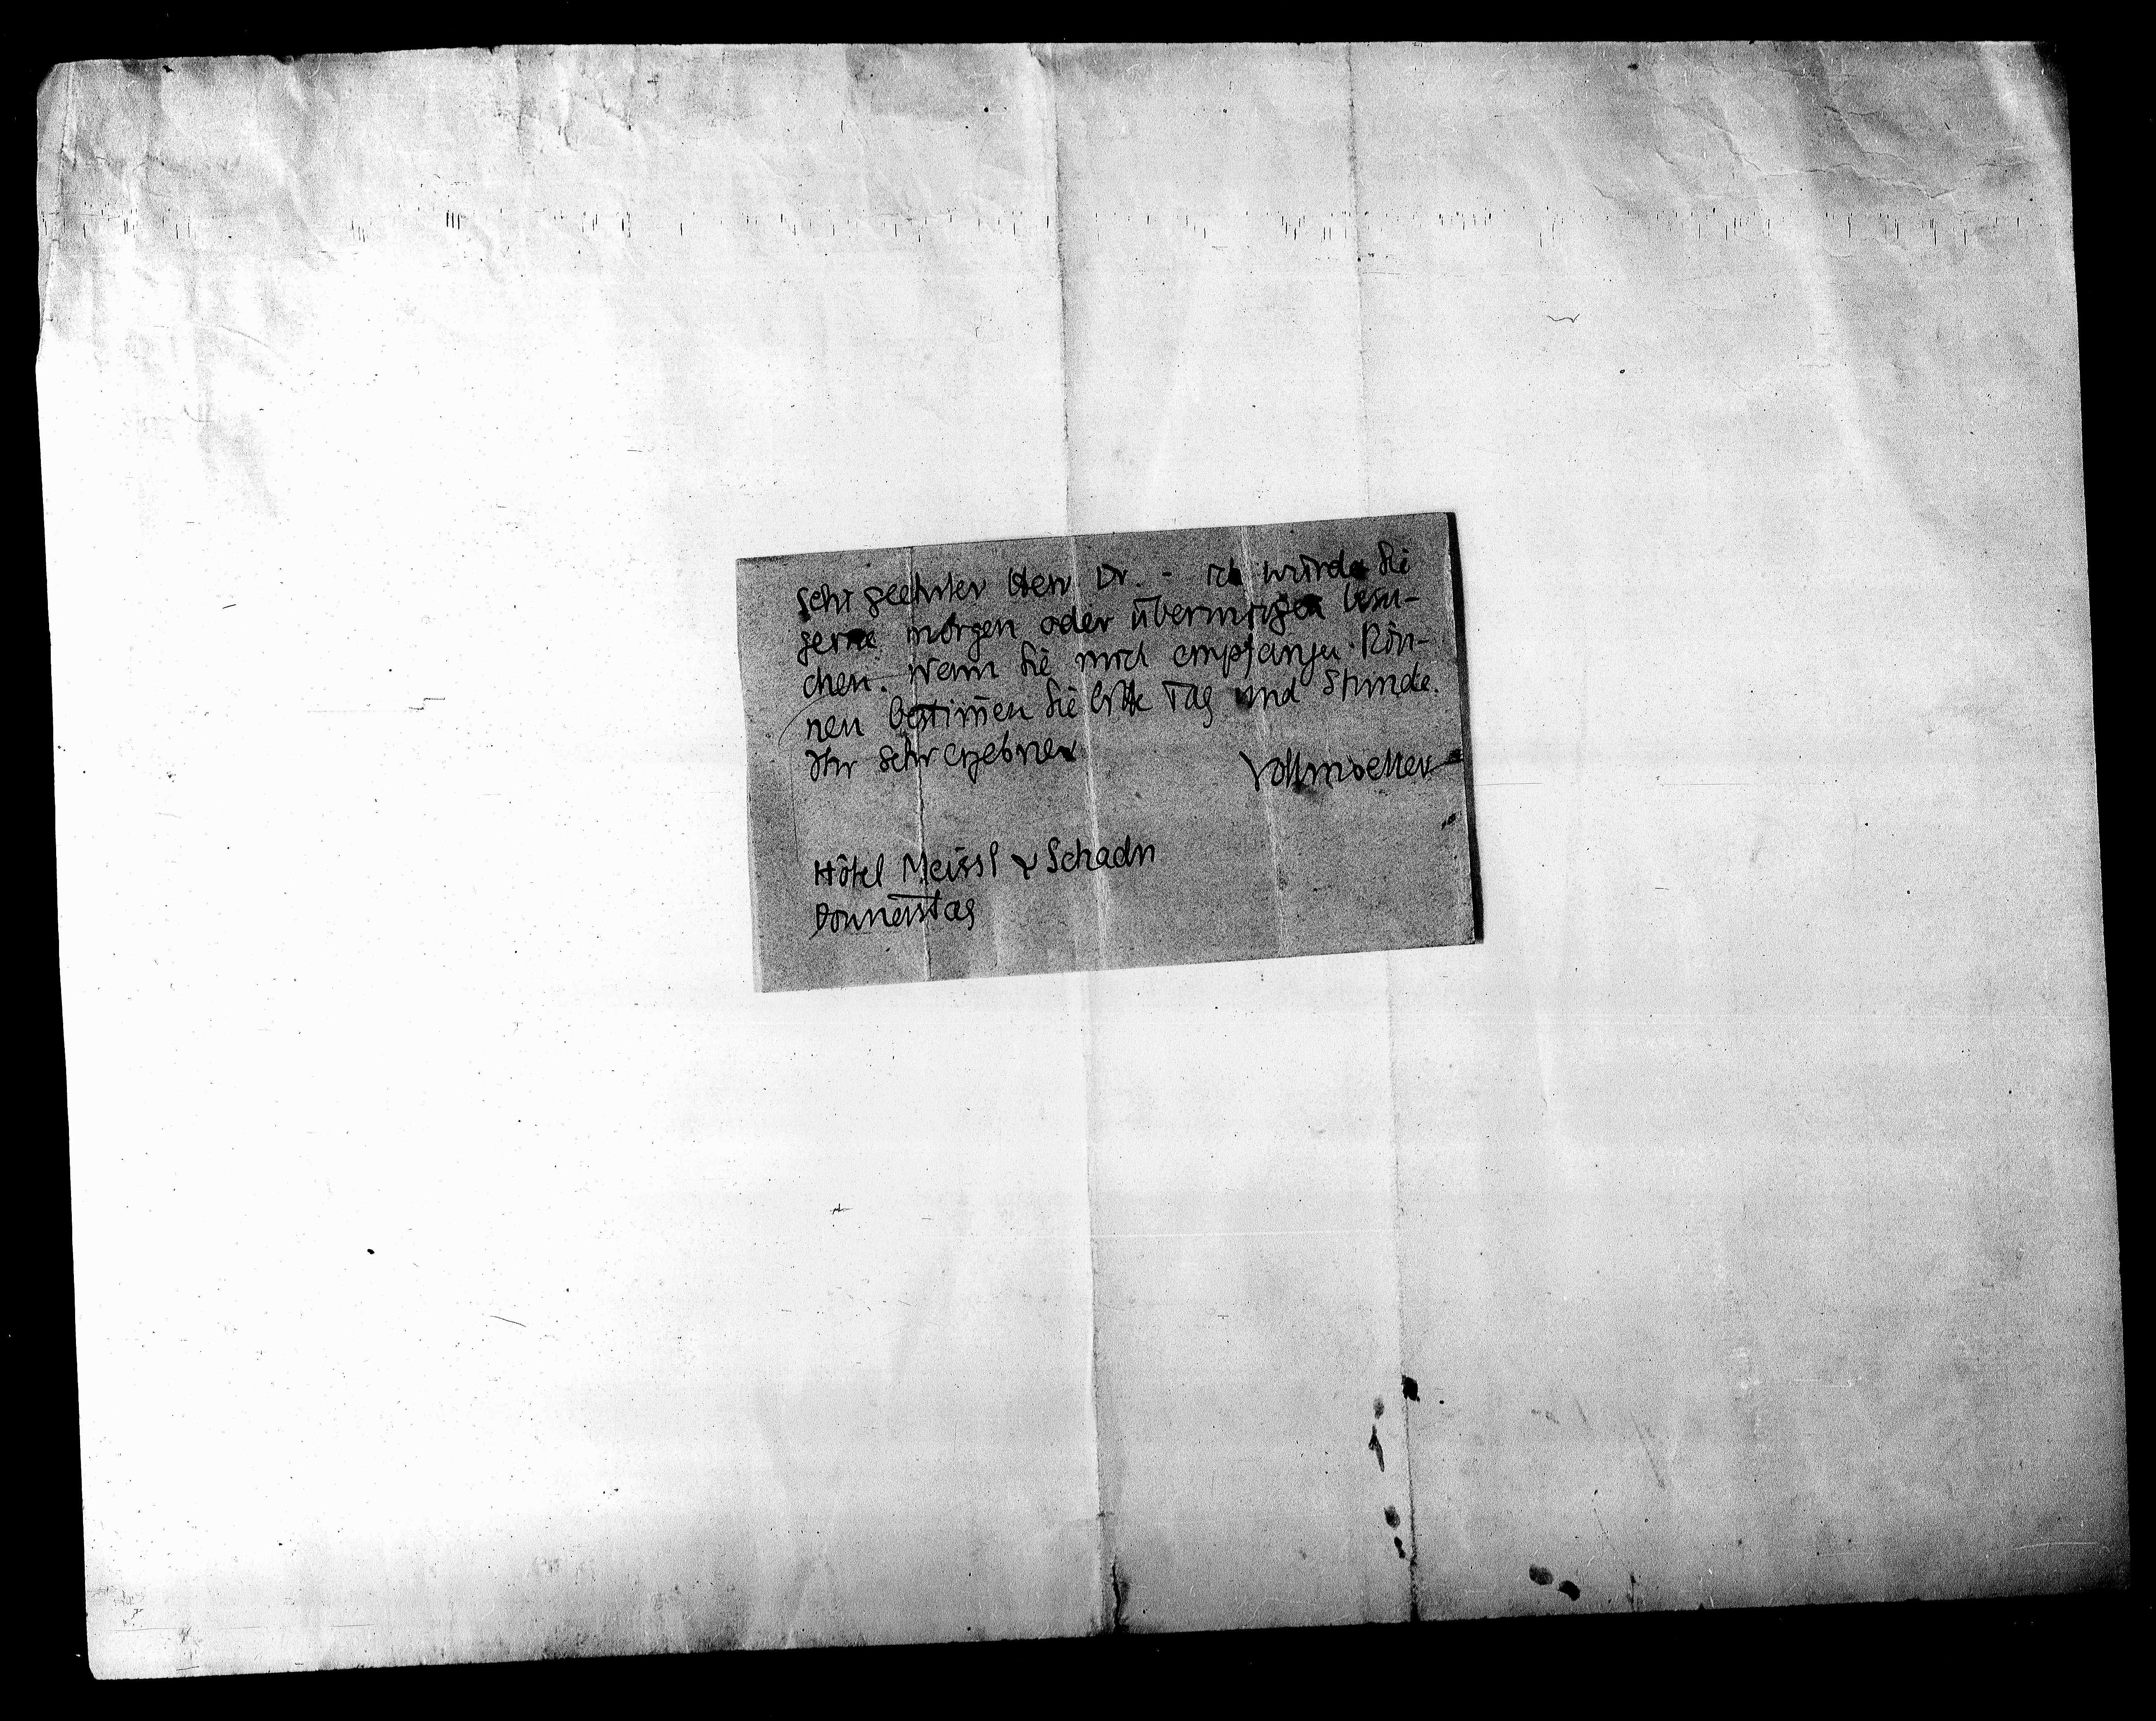 Sehr geehrter Herr Dr. - ich würde Sie
gerne morgen oder übermorgen besu-
chen. Wenn Sie mich empfangen kön-
nen bestim̄en Sie bitte Tag und Stunde.
Ihr sehr ergebner
Vollmoeller
Hôtel Meissl & Schadn
Donnerstag